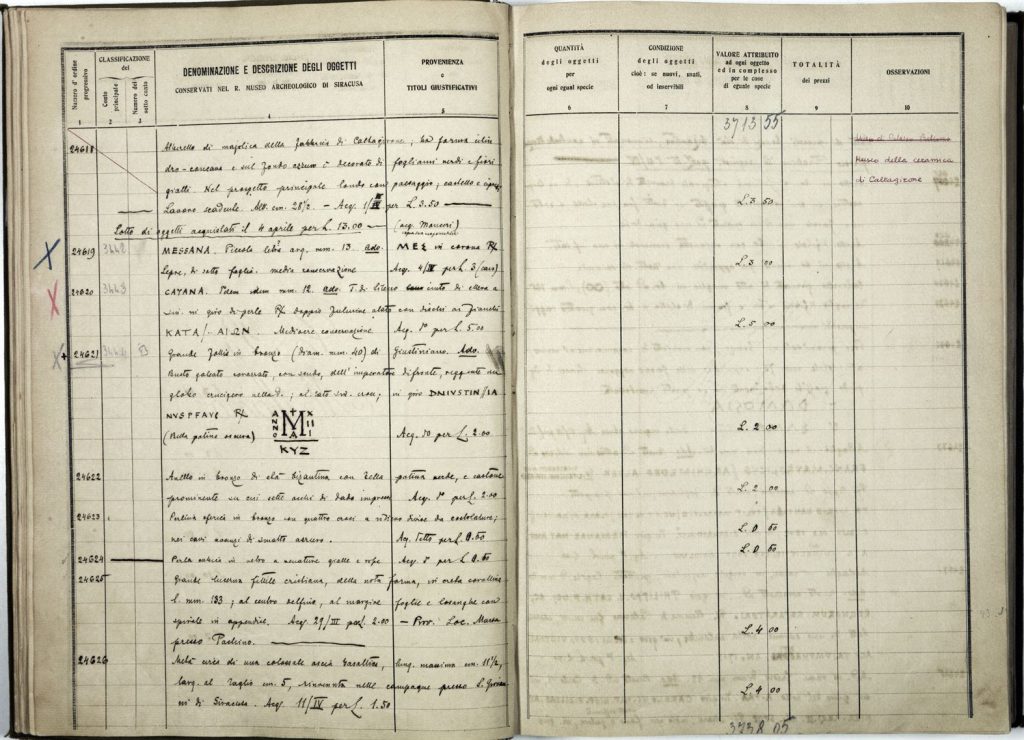 Numero d'ordine progressivo
CLASSIFICAZIONE del
Conto principale
Numero del sotto conto
DENOMINAZIONE E DESCRIZIONE DEGLI OGGETTI
CONSERVATI NEL R. MUSEO ARCHEOLOGICO DI SIRACUSA
PROVENIENZA
o
TITOLI GIUSTIFICATIVI
1 2 3 4 5
24618 Alberello di majolica della fabbrica di Caltagirone, ha forma cilin
dro-conocana e sul fondo azzurro è decorato di fogliami verdi e fiori
gialli. Nel prospetto principale tondo con paesaggio; castello e
Lavoro scadente. Alt. cm. 28½. - Acq. 1/IV per L. 3.50
Lotto di oggetti acquistati il 4 aprile per L. 13.00 (acq. Mauceri)
24619 3442 MESSANA. Piccola arg. mm. 13. ado. ΜΕΣ in corona R/
Lepre, di sotto foglia. media conservazione Acq. 4/IV per L. 3 (caro)
24620 3443 CATANA. Idem mm. 12. ado. T. di Sileno cinto di edera a
sin. in giro di perle R/ doppio fulmine alato con dischi ai fianchi
KATA/..ΑΙΩΝ. Mediocre conservazione. Acq. Io per L. 5.00
24621 3444 B Grande follis in bronzo (diam. mm. 40) di Giustiniano. Ado.
Busto galeato corazzato, con scudo, dell'imperatore di fronte, reggente un
globo crucigero nella d.; al lato sin. croce; in giro DNIVSTIN/IA
NVSPFAVC R/ ANNO M XIII
(Bella patina oscura) KYZ Acq. Io per L. 2.00
24622 Anello in bronzo di età bizantina con bella patina verde, e castone
prominente su cui sette occhi di dado impressi Acq. Io per L. 2.00
24623 Perlina sferica in bronzo con quattro croci a rilievo divise da costolature;
nei cavi avanzi di smalto azzurro. Acq. detto per L. 0.50
24624 Perla in vetro a venature gialle e rosse Acq. Io per L 0.50
24625 Grande lucerna fittile cristiana, della nota forma, in creta corallina
l. mm. 133; al centro delfino, al margine foglie e losanghe con
spirale in appendice. Acq. 29/III per L. 2.00 - Prov. Loc. Marza
presso Pachino.
24626 Metà circa di una colossale ascia basaltina, lung. massima cm. 11½,
larg. al taglio cm. 5, rinvenuta nelle campagne presso S. Giovan
ni di Siracusa. Acq. 11/IV per L. 1.50
QUANTITÀ
degli oggetti
per
ogni egual specie
6
CONDIZIONE
degli oggetti
cioè: se nuovi, usati,
od inservibili
7
VALORE ATTRIBUITO
ad ogni oggetto
ed in complesso
per le cose
di eguale specie
8
TOTALITÀ
dei prezzi
9
OSSERVAZIONI
10
3713 55
Museo della ceramica
di Caltagirone
L. 3 50
L. 3 00
L. 5 00
L. 2 00
L. 2 00
L. 0 50
L. 0 50
L. 4 00
L. 4 00
3738 05